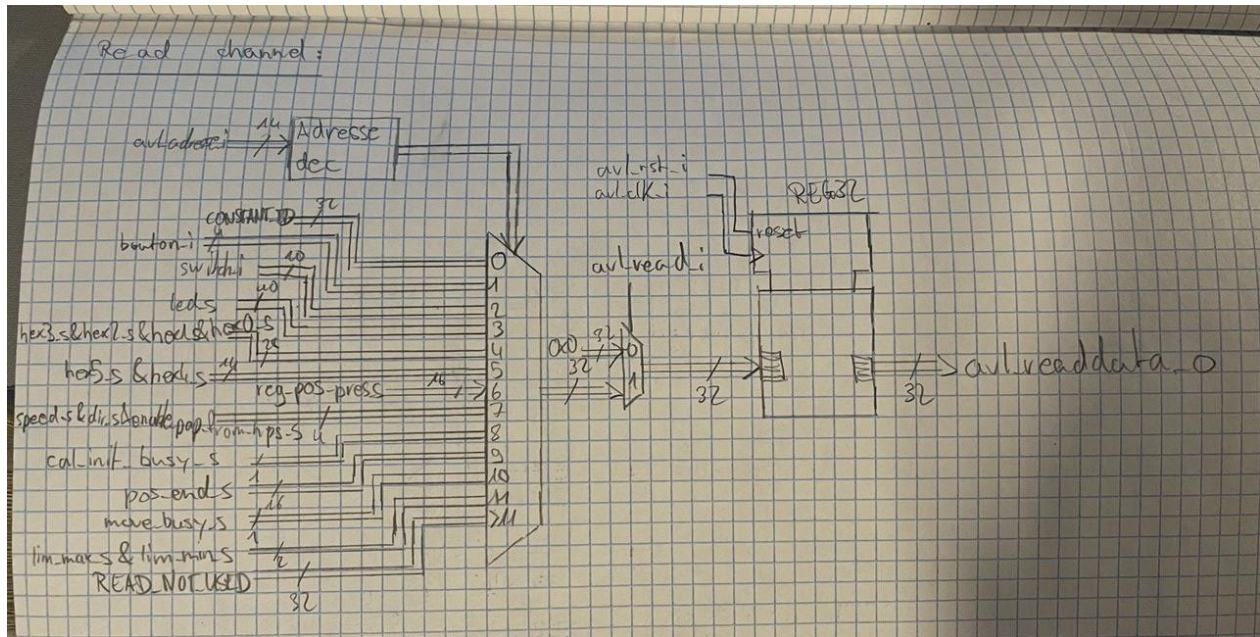 Read channel:
14
avl_adresse_i
Adresse
dec
avl_rst_i
avl_clk_i
REG32
reset
CONSTANT_ID
32
bouton_i
4
switch_i
10
led_s
10
hex3_s&hex2_s&hex1_s&hex0_s
28
hex5_s & hex4_s
14
reg_pos_press
16
speed_s&dir_s&enable_pap_from_hps_s
4
cal_init_busy_s
1
pos_end_s
16
move_busy_s
1
lim_max_s & lim_min_s
2
READ_NOT_USED
32
0
1
2
3
4
5
6
7
8
9
10
11
>11
avl_read_i
0x0
32
0
32
1
32
32
avl_readdata_o